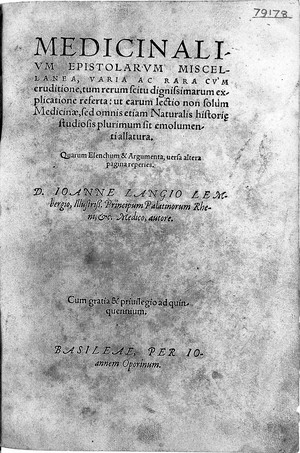 79178
MEDICINALI-
VM EPISTOLARVM MISCEL-
LANEA, VARIA AC RARA CVM
eruditione, tum rerum scitu dignissimarum ex-
plicatione referta: ut earum lectio non solùm
Medicinæ, sed omnis etiam Naturalis historiæ
studiosis plurimum sit emolumen-
ti allatura.
Quarum Elenchum & Argumenta, uersa altera
pagina reperies.
D. IOANNE LANGIO LEM-
bergio, Illustriss. Principum Palatinorum Rhe-
ni, &c. Medico, autore.
Cum gratia & priuilegio ad quin-
quennium.
BASILEAE, PER IO-
annem Oporinum.